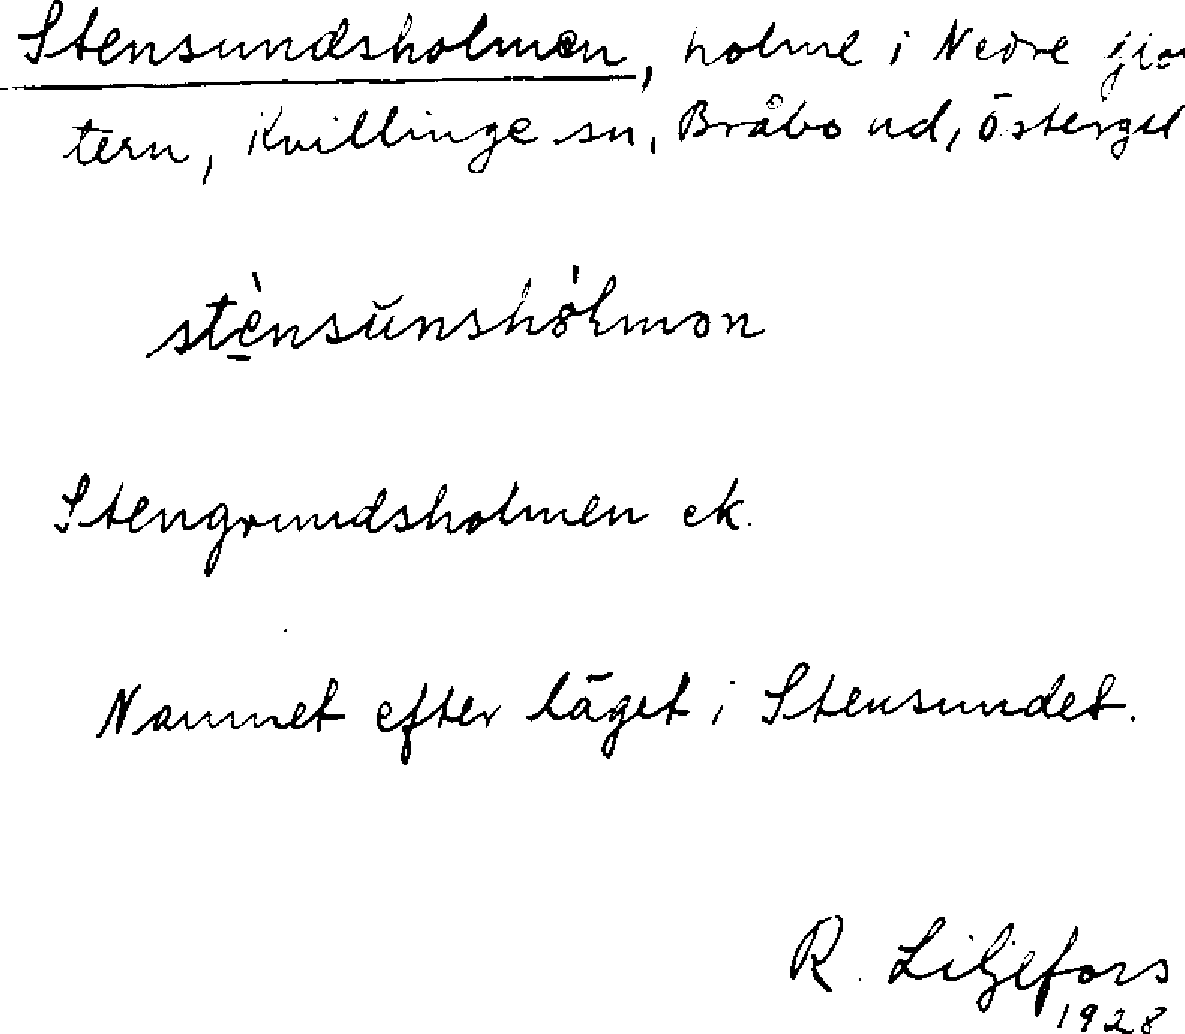 Stensundsholmen, holme i Nedre Glot
tern, Kvillinge sn, Bråbo hd, Östergtl
stènsŭnshólmən
Stengrundsholmen ek.
Namnet efter läget i Stensundet.
R. Liljefors
1928